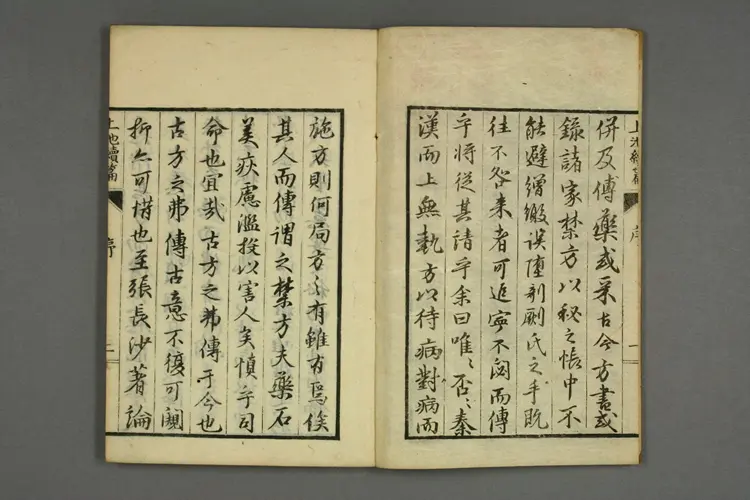 併及傅藥或采古今方書或
錄諸家禁方以秘之帳中不
能避繒繳誤墮剞劂氏之手既
往不咎来者可追寧不閟而傳
乎將從其請乎余曰唯〻否〻秦
漢而上無執方以待病對病而
施方則何局方〻有雖有焉俟
其人而傳謂之禁方夫藥石
美疢慮濫投以害人矣慎乎司
命也宜哉古方之弗傳于今也
古方之弗傳古意不復可闚
抑亦可惜也至張長沙著論
上池續篇
序
一
上池續篇
序
二